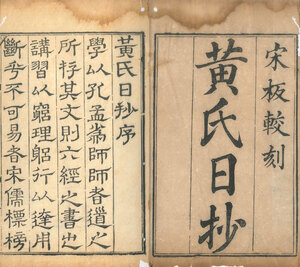 宋板較刻
黃氏日抄
黃氏日抄序
學以孔孟為師師者道之
所存其文則六經之書也
講習以窮理躬行以達用
斷乎不可易者宋儒標榜